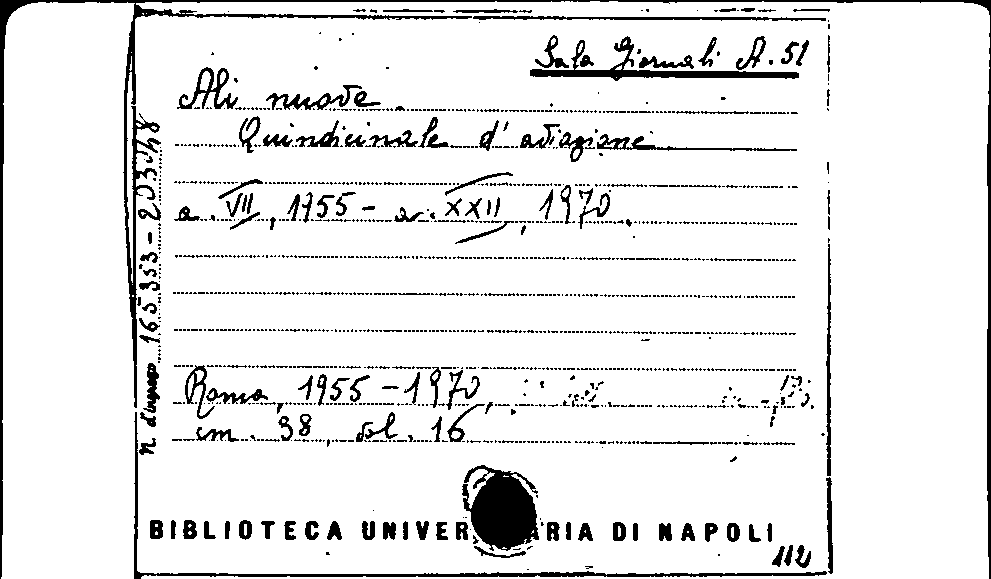 Sala Giornali A. 51
Ali nuove.
Quindicinale d'aviazione
a. VII, 1955 - a. XXII, 1970.
Roma, 1955-1970,
cm. 38, vol. 16
BIBLIOTECA DI NAPOLI
112
n. d'ingresso 165353-203048